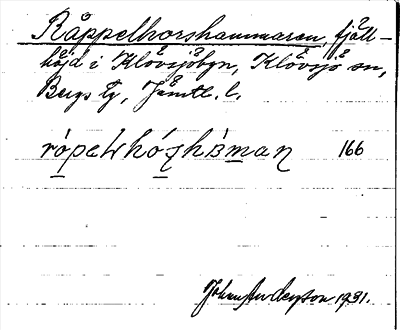 Råppelhorshammaren, fjäll-
höjd i Klövsjöbyn, Klövsjö sn,
Bergs tg, Jämtl. l.
166
Johan Anderson 1931.